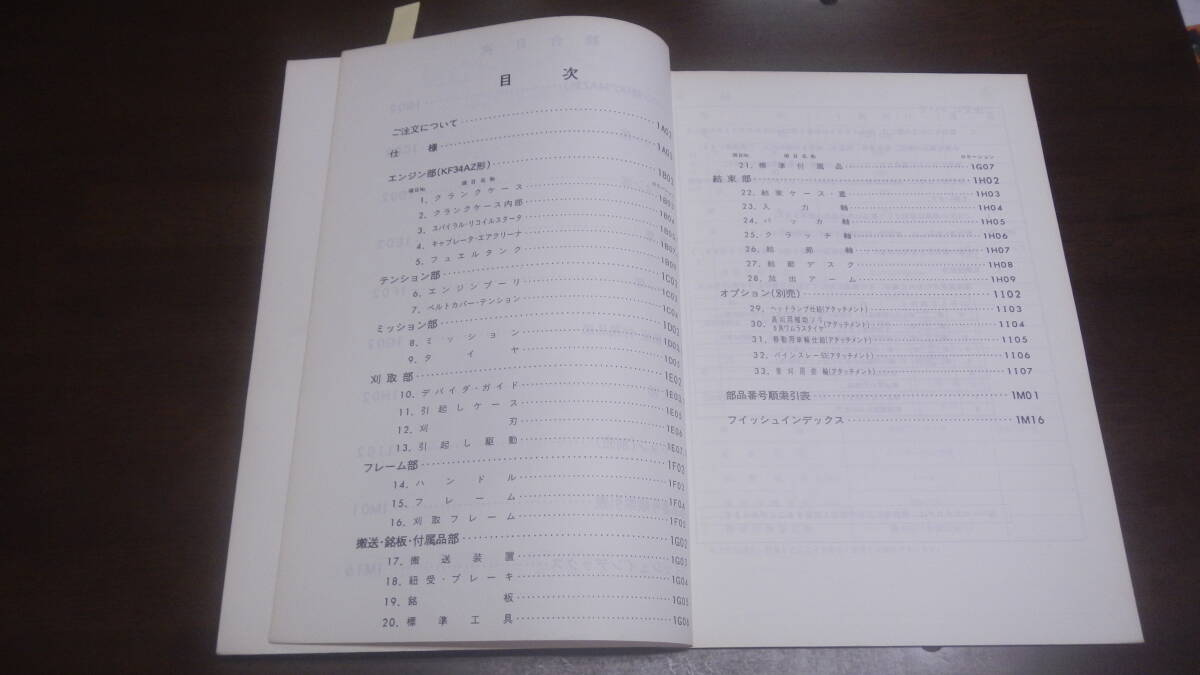 目次
ご注文について 1A02
仕様 1A03
エンジン部(KF34AZ形) 1B02
項目No. 項目名称 ロケーション
1. クランクケース 1B03
2. クランクケース内部 1B04
3. スパイラル・リコイルスタータ 1B05
4. キャブレータ・エアクリーナ 1B07
5. フュエルタンク 1B09
テンション部 1C02
6. エンジンプーリ 1C03
7. ベルトカバー・テンション 1C04
ミッション部 1D02
8. ミッション 1D03
9. タイヤ 1D05
刈取部 1E02
10. デバイダ・ガイド 1E03
11. 引起しケース 1E05
12. 刈刃 1E06
13. 引起し駆動 1E07
フレーム部 1F02
14. ハンドル 1F03
15. フレーム 1F04
16. 刈取フレーム 1F05
搬送・銘板・付属品部 1G02
17. 搬送装置 1G03
18. 紐受・ブレーキ 1G04
19. 銘板 1G05
20. 標準工具 1G06
項目No. 項目名称 ロケーション
21. 標準付属品 1G07
結束部 1H02
22. 結束ケース・蓋 1H03
23. 入力軸 1H04
24. パッカ軸 1H05
25. クラッチ軸 1H06
26. 結節軸 1H07
27. 結節デスク 1H08
28. 放出アーム 1H09
オプション(別売) 1I02
29. ヘッドランプ仕組(アタッチメント) 1I03
30. (アタッチメント) 1I04
31. 移動用車輪仕組(アタッチメント) 1I05
32. (アタッチメント) 1I06
33. (アタッチメント) 1I07
部品番号順索引表 1M01
フイッシュインデックス 1M16